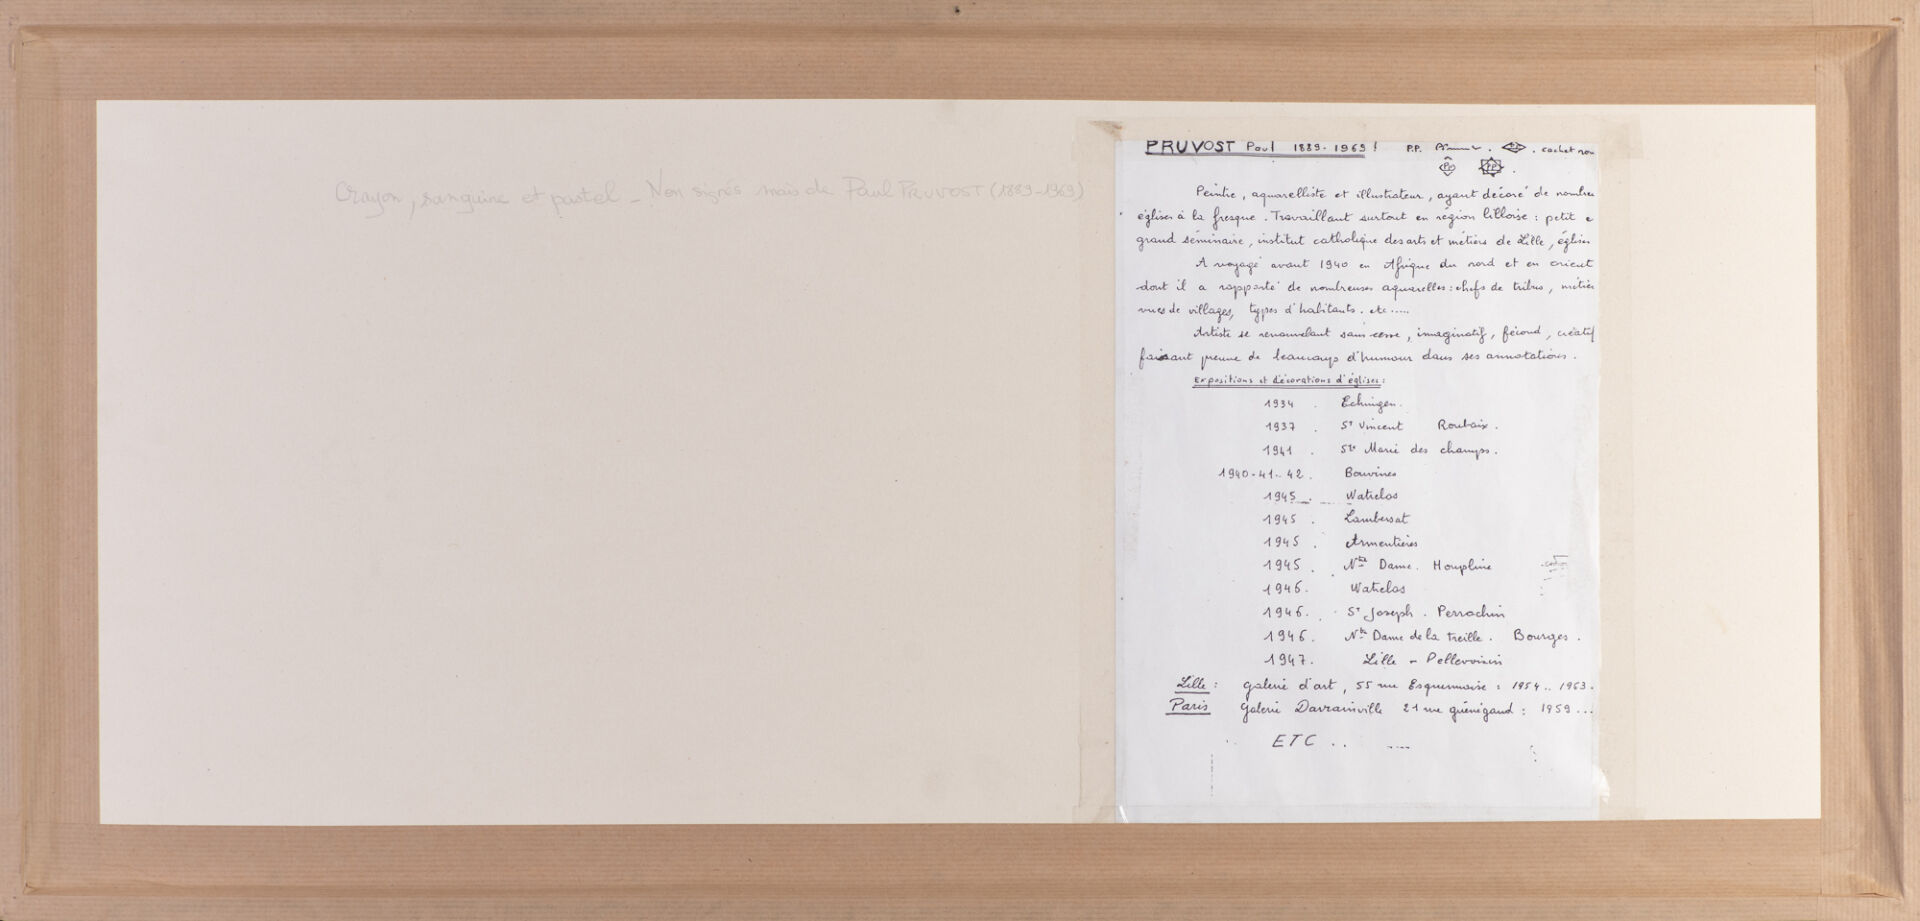 Crayon, sanguine et pastel - Non signés mais de Paul PRUVOST (1889-1969)
PRUVOST Paul 1889-1969! P.P. . . cachet rou
PP PP .
Peintre, aquarelliste et illustrateur, ayant décoré de nombre
églises à la fresque. Travaillant surtout en région lilloise : petit e
grand séminaire, institut catholique des arts et métiers de Lille, églises
A voyagé avant 1940 en Afrique du nord et en orient
dont il a rapporté de nombreuses aquarelles : chefs de tribus, métier
vues de villages, types d'habitants. etc.....
Artiste se renouvelant sans cesse, imaginatif, fécond, créatif
faisant preuve de beaucoup d'humour dans ses annotations.
Expositions et décorations d'églises :
1934 . Echingen.
1937 . St Vincent Roubaix.
1941 . Ste Marie des champs.
1940-41..42. Bouvines
1945 . Watrelos
1945 . Lambersat
1945 . Armentières
1945 . Ntre Dame. Houpline
1946. Watrelos
1946. St Joseph. Perrachin
1946. Ntre Dame de la treille. Bourges.
1947. Lille - Pellevoisin
Lille : galerie d'art, 55 rue Esquermoise : 1954.. 1963.
Paris galerie Davrainville 21 rue guénégaud : 1959...
ETC ..